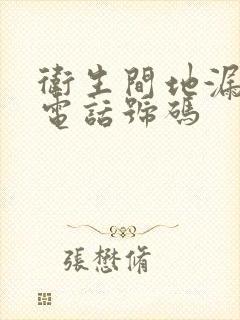 衛生間地漏
電話號碼
張懋脩